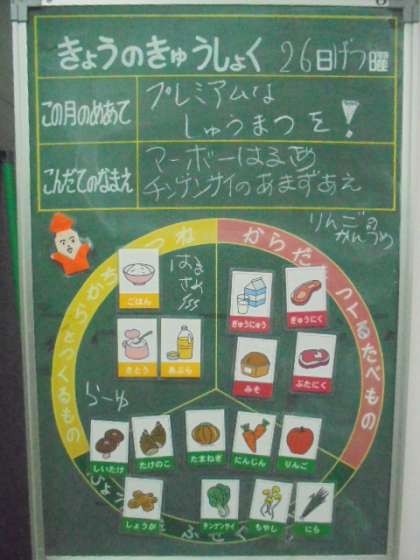 きょうのきゅうしょく 26日げつ曜
この月のめあて
プレミアムな
しゅうまつを!
こんだてのなまえ
マーボーはるさめ
チンゲンサイのあまずあえ
りんごの
かんづめ
ねつやちからをつくるもの
からだをつくるたべもの
はる
さめ
ごはん
ぎゅうにゅう
ぎゅうにく
さとう
あぶら
みそ
ぶたにく
らーゆ
しいたけ
たけのこ
たまねぎ
にんじん
りんご
しょうが
チンゲンサイ
もやし
にら
ふせぐ